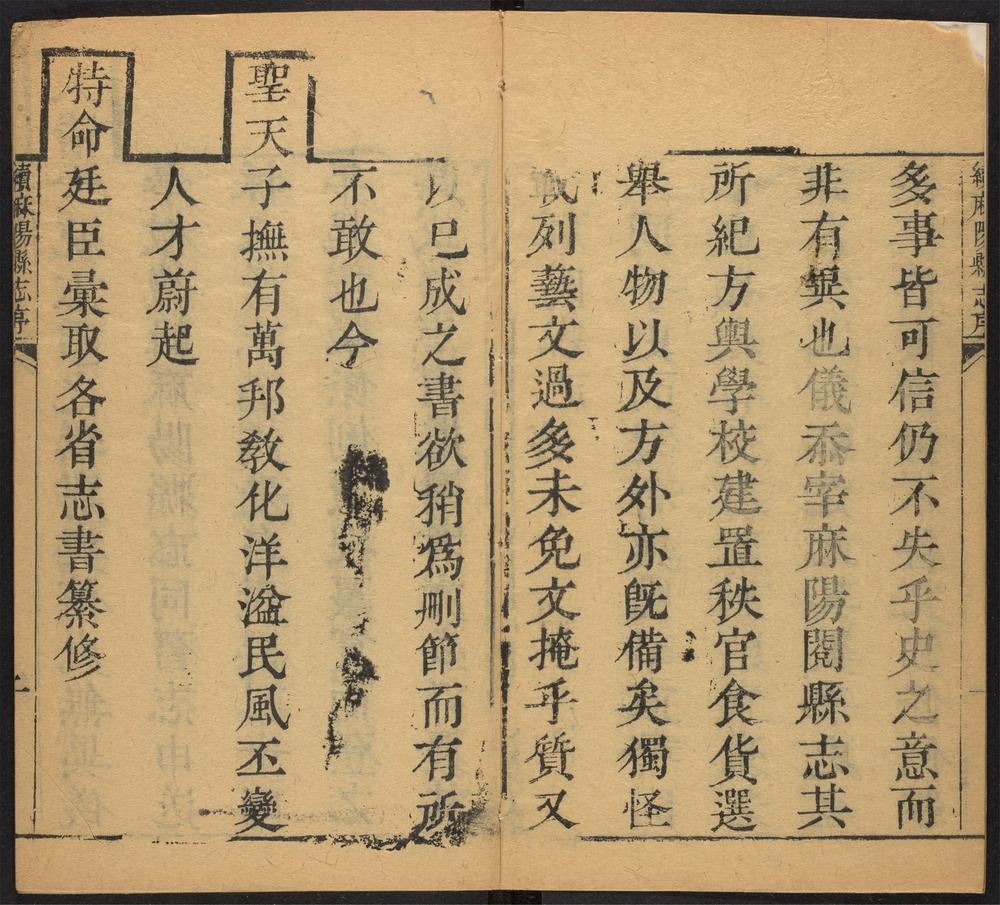 續麻陽縣志序
多事皆可信仍不失乎史之意而
非有異也儀忝宰麻陽閱縣志其
所紀方輿學校建置秩官食貨選
舉人物以及方外亦旣備矣獨怪
列藝文過多未免文掩乎質又
以已成之書欲稍爲刪節而有所
不敢也今
聖天子撫有萬邦敎化洋溢民風丕變
人才蔚起
特命廷臣彙取各省志書纂修
續麻陽縣志序